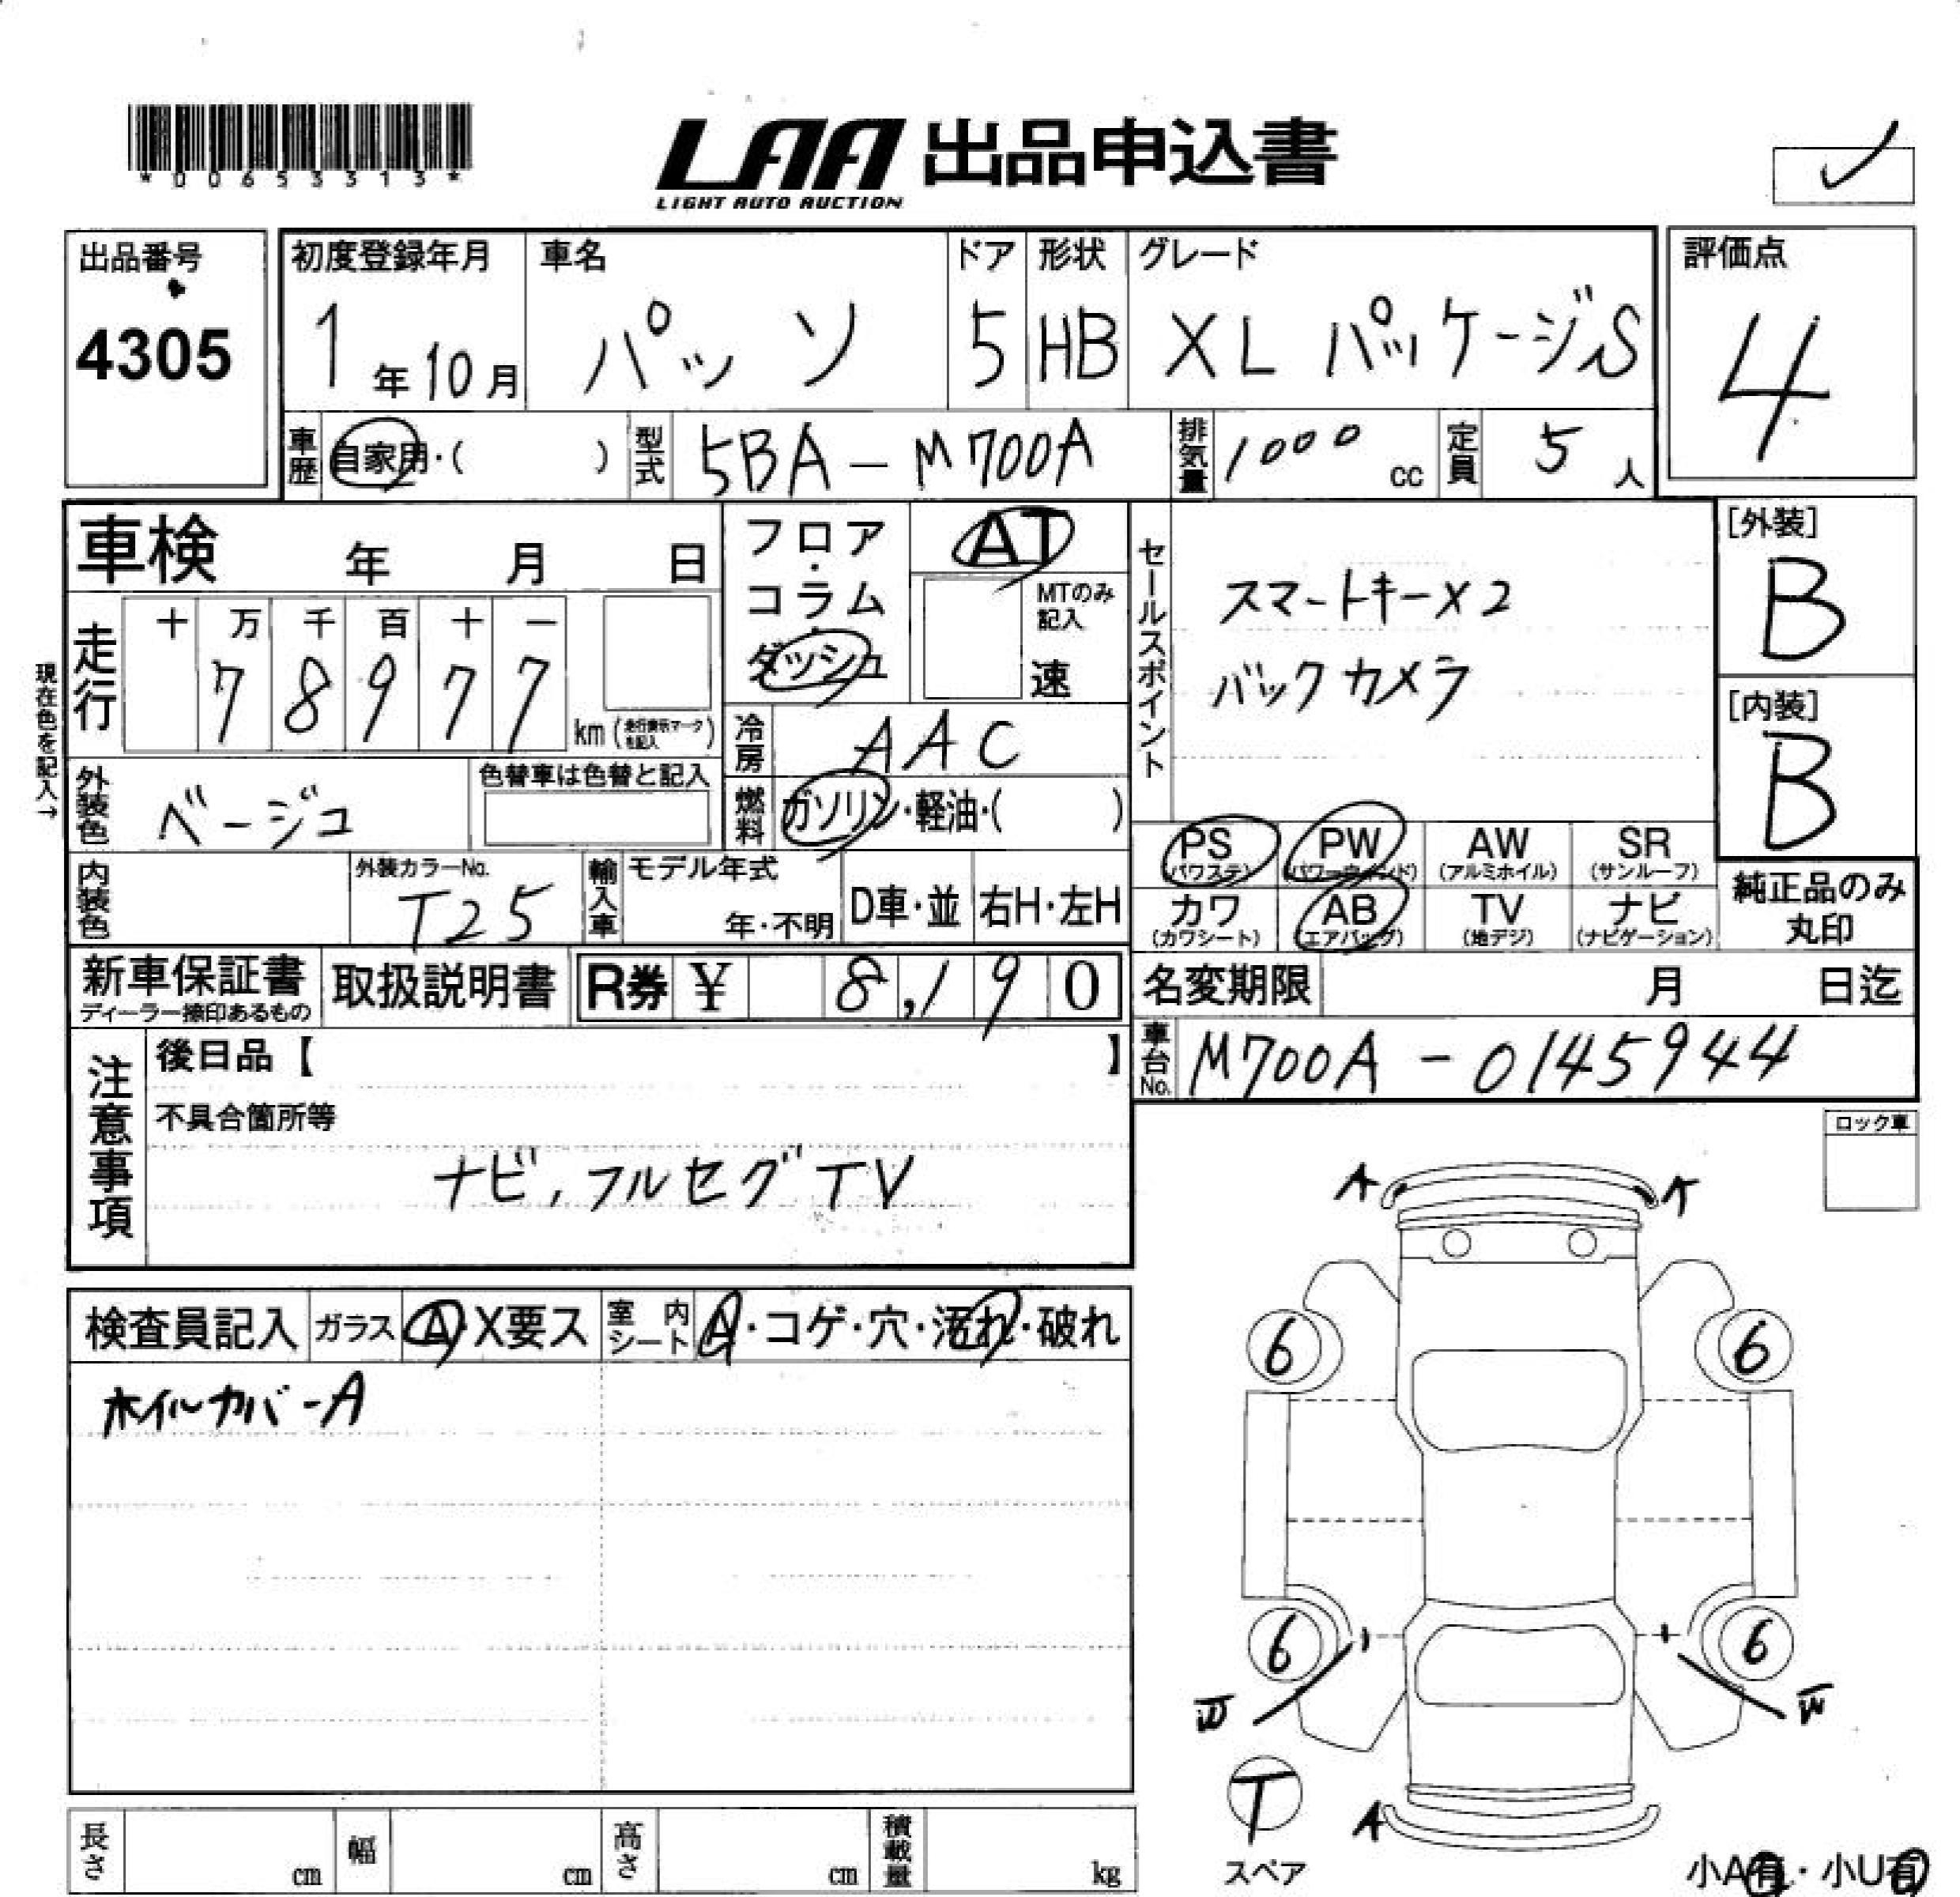 *00653313*
LAA 出品申込書
LIGHT AUTO AUCTION
出品番号
4305
初度登録年月
1年10月
車名
パッソ
ドア
5
形状
HB
グレード
XL パッケージS
評価点
4
車歴
自家用・( )
型式
5BA-M700A
排気量
1000 cc
定員
5 人
車検 年 月 日
フロア・コラム・ダッシュ
AT
MTのみ記入
速
セールスポイント
スマートキー×2
バックカメラ
[外装]
B
[内装]
B
現在色を記入→
走行
十 万 千 百 十 一
7 8 9 7 7
km (走行表示マークを記入)
冷房
AAC
燃料
ガソリン・軽油・( )
外装色
ベージュ
色替車は色替と記入
PS
(パワステ)
PW
(パワーウィンド)
AW
(アルミホイル)
SR
(サンルーフ)
カワ
(カワシート)
AB
(エアバッグ)
TV
(地デジ)
ナビ
(ナビゲーション)
純正品のみ
丸印
内装色
外装カラーNo.
T25
輸入車
モデル年式
年・不明
D車・並
右H・左H
新車保証書
ディーラー捺印あるもの
取扱説明書
R券 ¥ 8,190
名変期限 月 日迄
車台No.
M700A-0145944
注意事項
後日品【 】
不具合箇所等
ナビ, フルセグTV
ロック車
検査員記入
ガラス
A・X要ス
室内シート
A・コゲ・穴・汚れ・破れ
ホイルカバーA
A A
6 6
6 6
T
スペア
A
長さ cm
幅 cm
高さ cm
積載量 kg
小A有・小U有